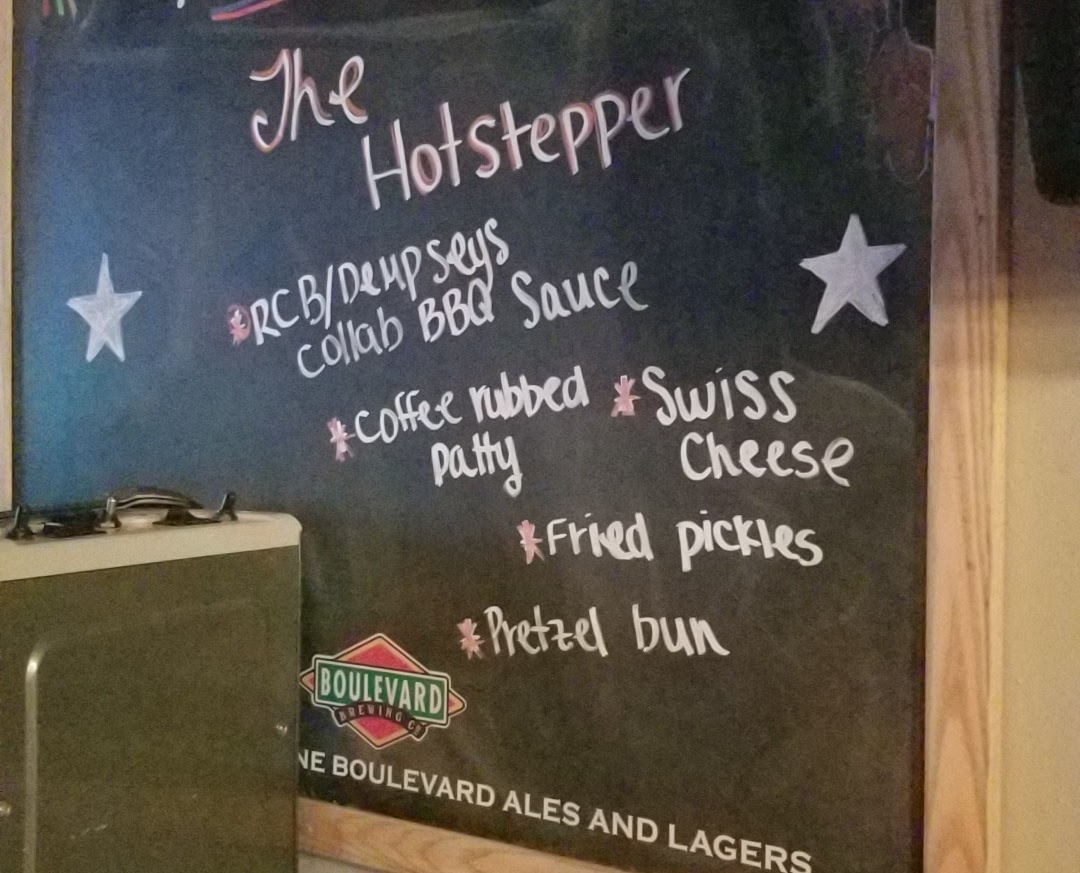 The
Hotstepper
*RCB/Dempseys
collab BBQ Sauce
*Coffee rubbed
patty
*Swiss
Cheese
*Fried pickles
*Pretzel bun
BOULEVARD
BREWING CO
NE BOULEVARD ALES AND LAGERS